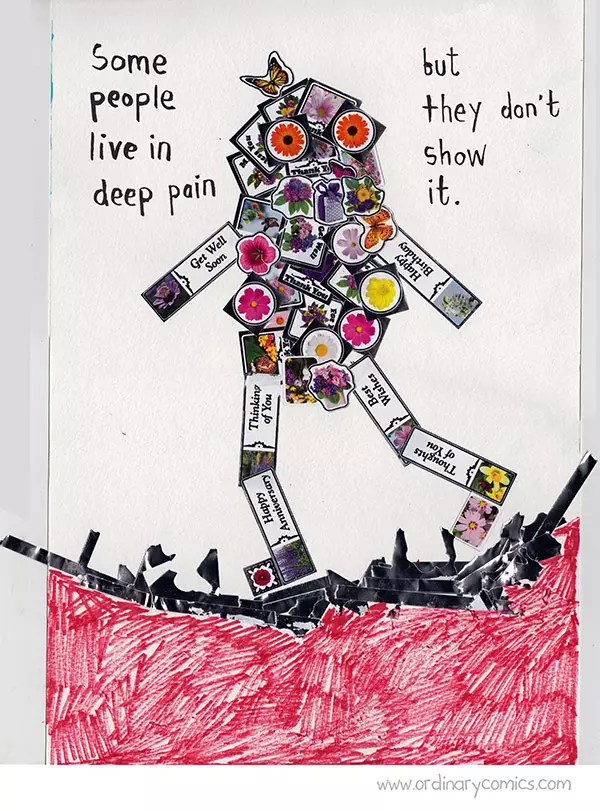 Some
people
live in
deep pain
but
they don't
show
it.
Thank Y
Get Well
Soon
Happy
Birthday
Thank You!
Thinking
of You
Best
Wishes
Thoughts
of You
Happy
Anniversary
www.ordinarycomics.com